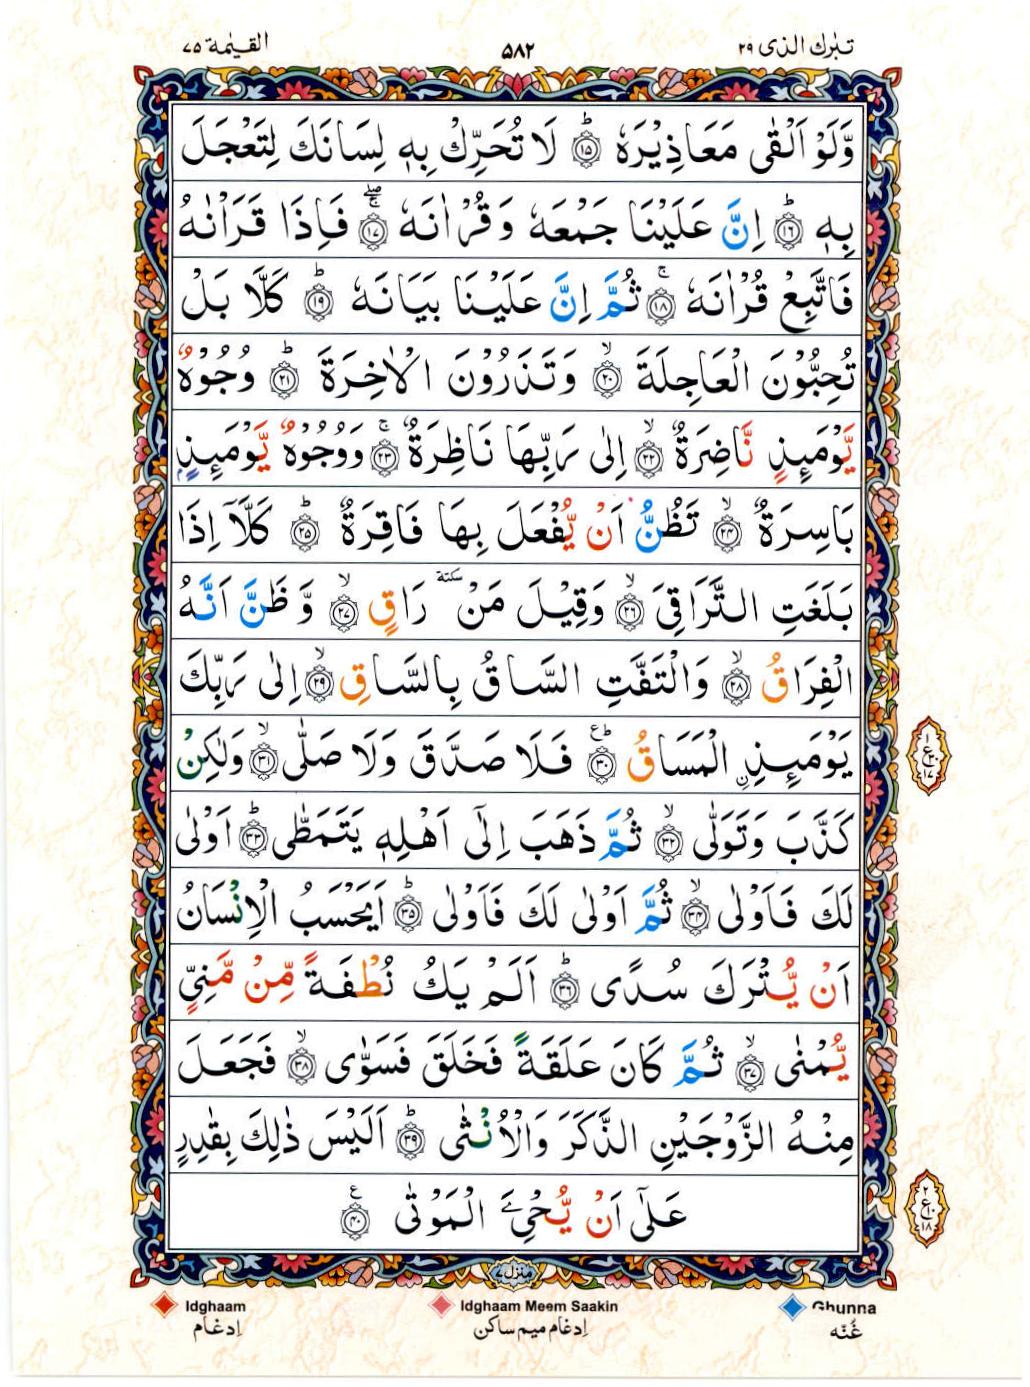 تبٰرك الذى ٢٩
٥٨٢
القيٰمة ٧٥
وَّلَوْ اَلْقٰى مَعَاذِيْرَهٗ ؕ ﴿۱۵﴾ لَا تُحَرِّكْ بِهٖ لِسَانَكَ لِتَعْجَلَ
بِهٖ ؕ ﴿۱۶﴾ اِنَّ عَلَيْنَا جَمْعَهٗ وَ قُرْاٰنَهٗ ۚۖ ﴿۱۷﴾ فَاِذَا قَرَاْنٰهُ
فَاتَّبِعْ قُرْاٰنَهٗ ۚ ﴿۱۸﴾ ثُمَّ اِنَّ عَلَيْنَا بَيَانَهٗ ؕ ﴿۱۹﴾ كَلَّا بَلْ
تُحِبُّوْنَ الْعَاجِلَةَ ۙ ﴿۲۰﴾ وَ تَذَرُوْنَ الْاٰخِرَةَ ؕ ﴿۲۱﴾ وُجُوْهٌ
يَّوْمَىِٕذٍ نَّاضِرَةٌ ۙ ﴿۲۲﴾ اِلٰى رَبِّهَا نَاظِرَةٌ ۚ ﴿۲۳﴾ وَ وُجُوْهٌ يَّوْمَىِٕذٍۭ
بَاسِرَةٌ ۙ ﴿۲۴﴾ تَظُنُّ اَنْ يُّفْعَلَ بِهَا فَاقِرَةٌ ؕ ﴿۲۵﴾ كَلَّاۤ اِذَا
بَلَغَتِ التَّرَاقِىَ ۙ ﴿۲۶﴾ وَ قِيْلَ مَنْ سكتة رَاقٍ ۙ ﴿۲۷﴾ وَّ ظَنَّ اَنَّهُ
الْفِرَاقُ ۙ ﴿۲۸﴾ وَ الْتَفَّتِ السَّاقُ بِالسَّاقِ ۙ ﴿۲۹﴾ اِلٰى رَبِّكَ
يَوْمَىِٕذِ اِ۟لْمَسَاقُ ؕ ع ﴿۳۰﴾ فَلَا صَدَّقَ وَ لَا صَلّٰى ۙ ﴿۳۱﴾ وَ لٰكِنْ
كَذَّبَ وَ تَوَلّٰى ۙ ﴿۳۲﴾ ثُمَّ ذَهَبَ اِلٰۤى اَهْلِهٖ يَتَمَطّٰى ؕ ﴿۳۳﴾ اَوْلٰى
لَكَ فَاَوْلٰى ۙ ﴿۳۴﴾ ثُمَّ اَوْلٰى لَكَ فَاَوْلٰى ؕ ﴿۳۵﴾ اَيَحْسَبُ الْاِنْسَانُ
اَنْ يُّتْرَكَ سُدًى ؕ ﴿۳۶﴾ اَلَمْ يَكُ نُطْفَةً مِّنْ مَّنِىٍّ
يُّمْنٰى ۙ ﴿۳۷﴾ ثُمَّ كَانَ عَلَقَةً فَخَلَقَ فَسَوّٰى ۙ ﴿۳۸﴾ فَجَعَلَ
مِنْهُ الزَّوْجَيْنِ الذَّكَرَ وَ الْاُنْثٰى ؕ ﴿۳۹﴾ اَلَيْسَ ذٰلِكَ بِقٰدِرٍ
عَلٰۤى اَنْ يُّحْۦِىَ الْمَوْتٰى ع ﴿۴۰﴾
١ ع ٣٠ ١٧
٢ ع ١٠ ١٨
منزل ٧
Idghaam
Idghaam Meem Saakin
Ghunna
اِدغَام
اِدغَام مِيم ساكن
غُنّه